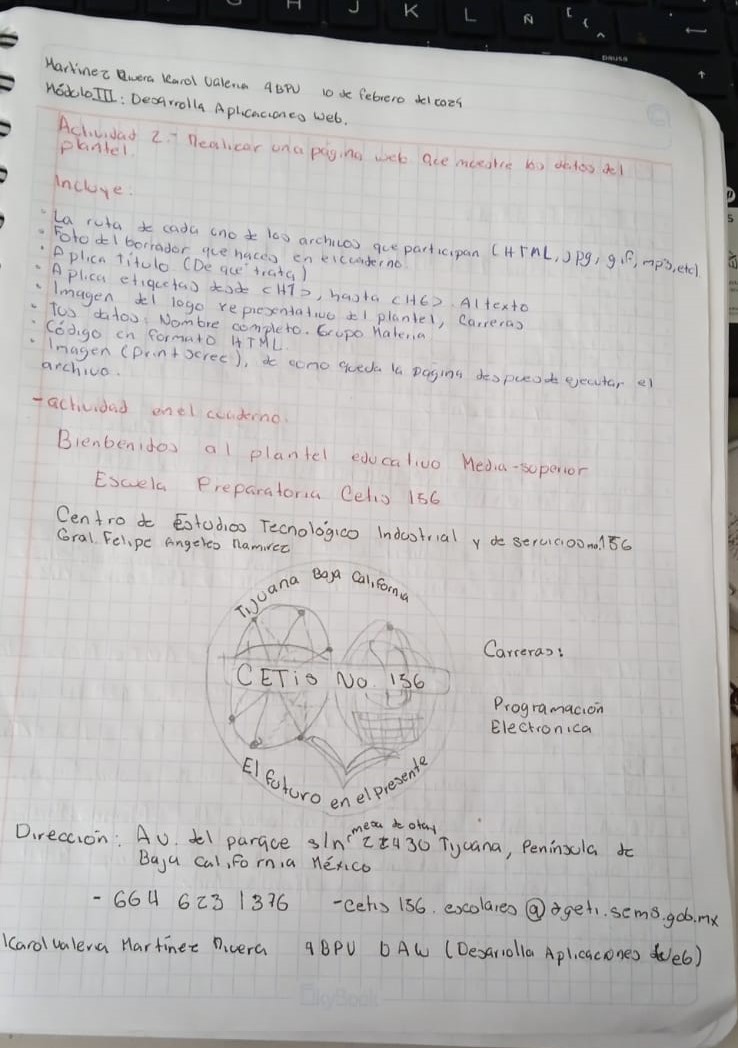 H J K L Ñ
PAUSA
Martinez Rivera Karol Valeria 4BPV 10 de Febrero del 2024
Módulo III: Desarrolla Aplicaciones Web.
Actividad 2.- Realizar una página web que muestre los datos del
plantel.
Incluye:
· La ruta de cada uno de los archivos que participan (HTML, jpg, gif, mp3, etc)
· Foto del borrador que haces en el cuaderno
· Aplica Título (De que trata)
· Aplica etiquetas desde <H1>, hasta <H6>. Al texto
· Imagen del logo representativo del plantel, Carreras
· Tus datos: Nombre completo. Grupo Materia
· Código en formato HTML.
· Imagen (print scree), de como queda la pagina despues de ejecutar el
archivo.
- actividad en el cuaderno.
Bienbenidos al plantel educativo Media-superior
Escuela Preparatoria Cetis 156
Centro de Estudios Tecnológico Industrial y de servicios no.156
Gral. Felipe Angeles Ramirez
Tijuana Baja California
CETis No. 156
El futuro en el presente
Carreras:
Programación
Electronica
Dirección: Av. del parque s/n mesa de otay 22430 Tijuana, Península de
Baja California México
- 664 623 1376 -cetis 156. escolares @dgeti.sems.gob.mx
Karol valeria Martínez Rivera 4BPV DAW (Desarrolla Aplicaciones Web)